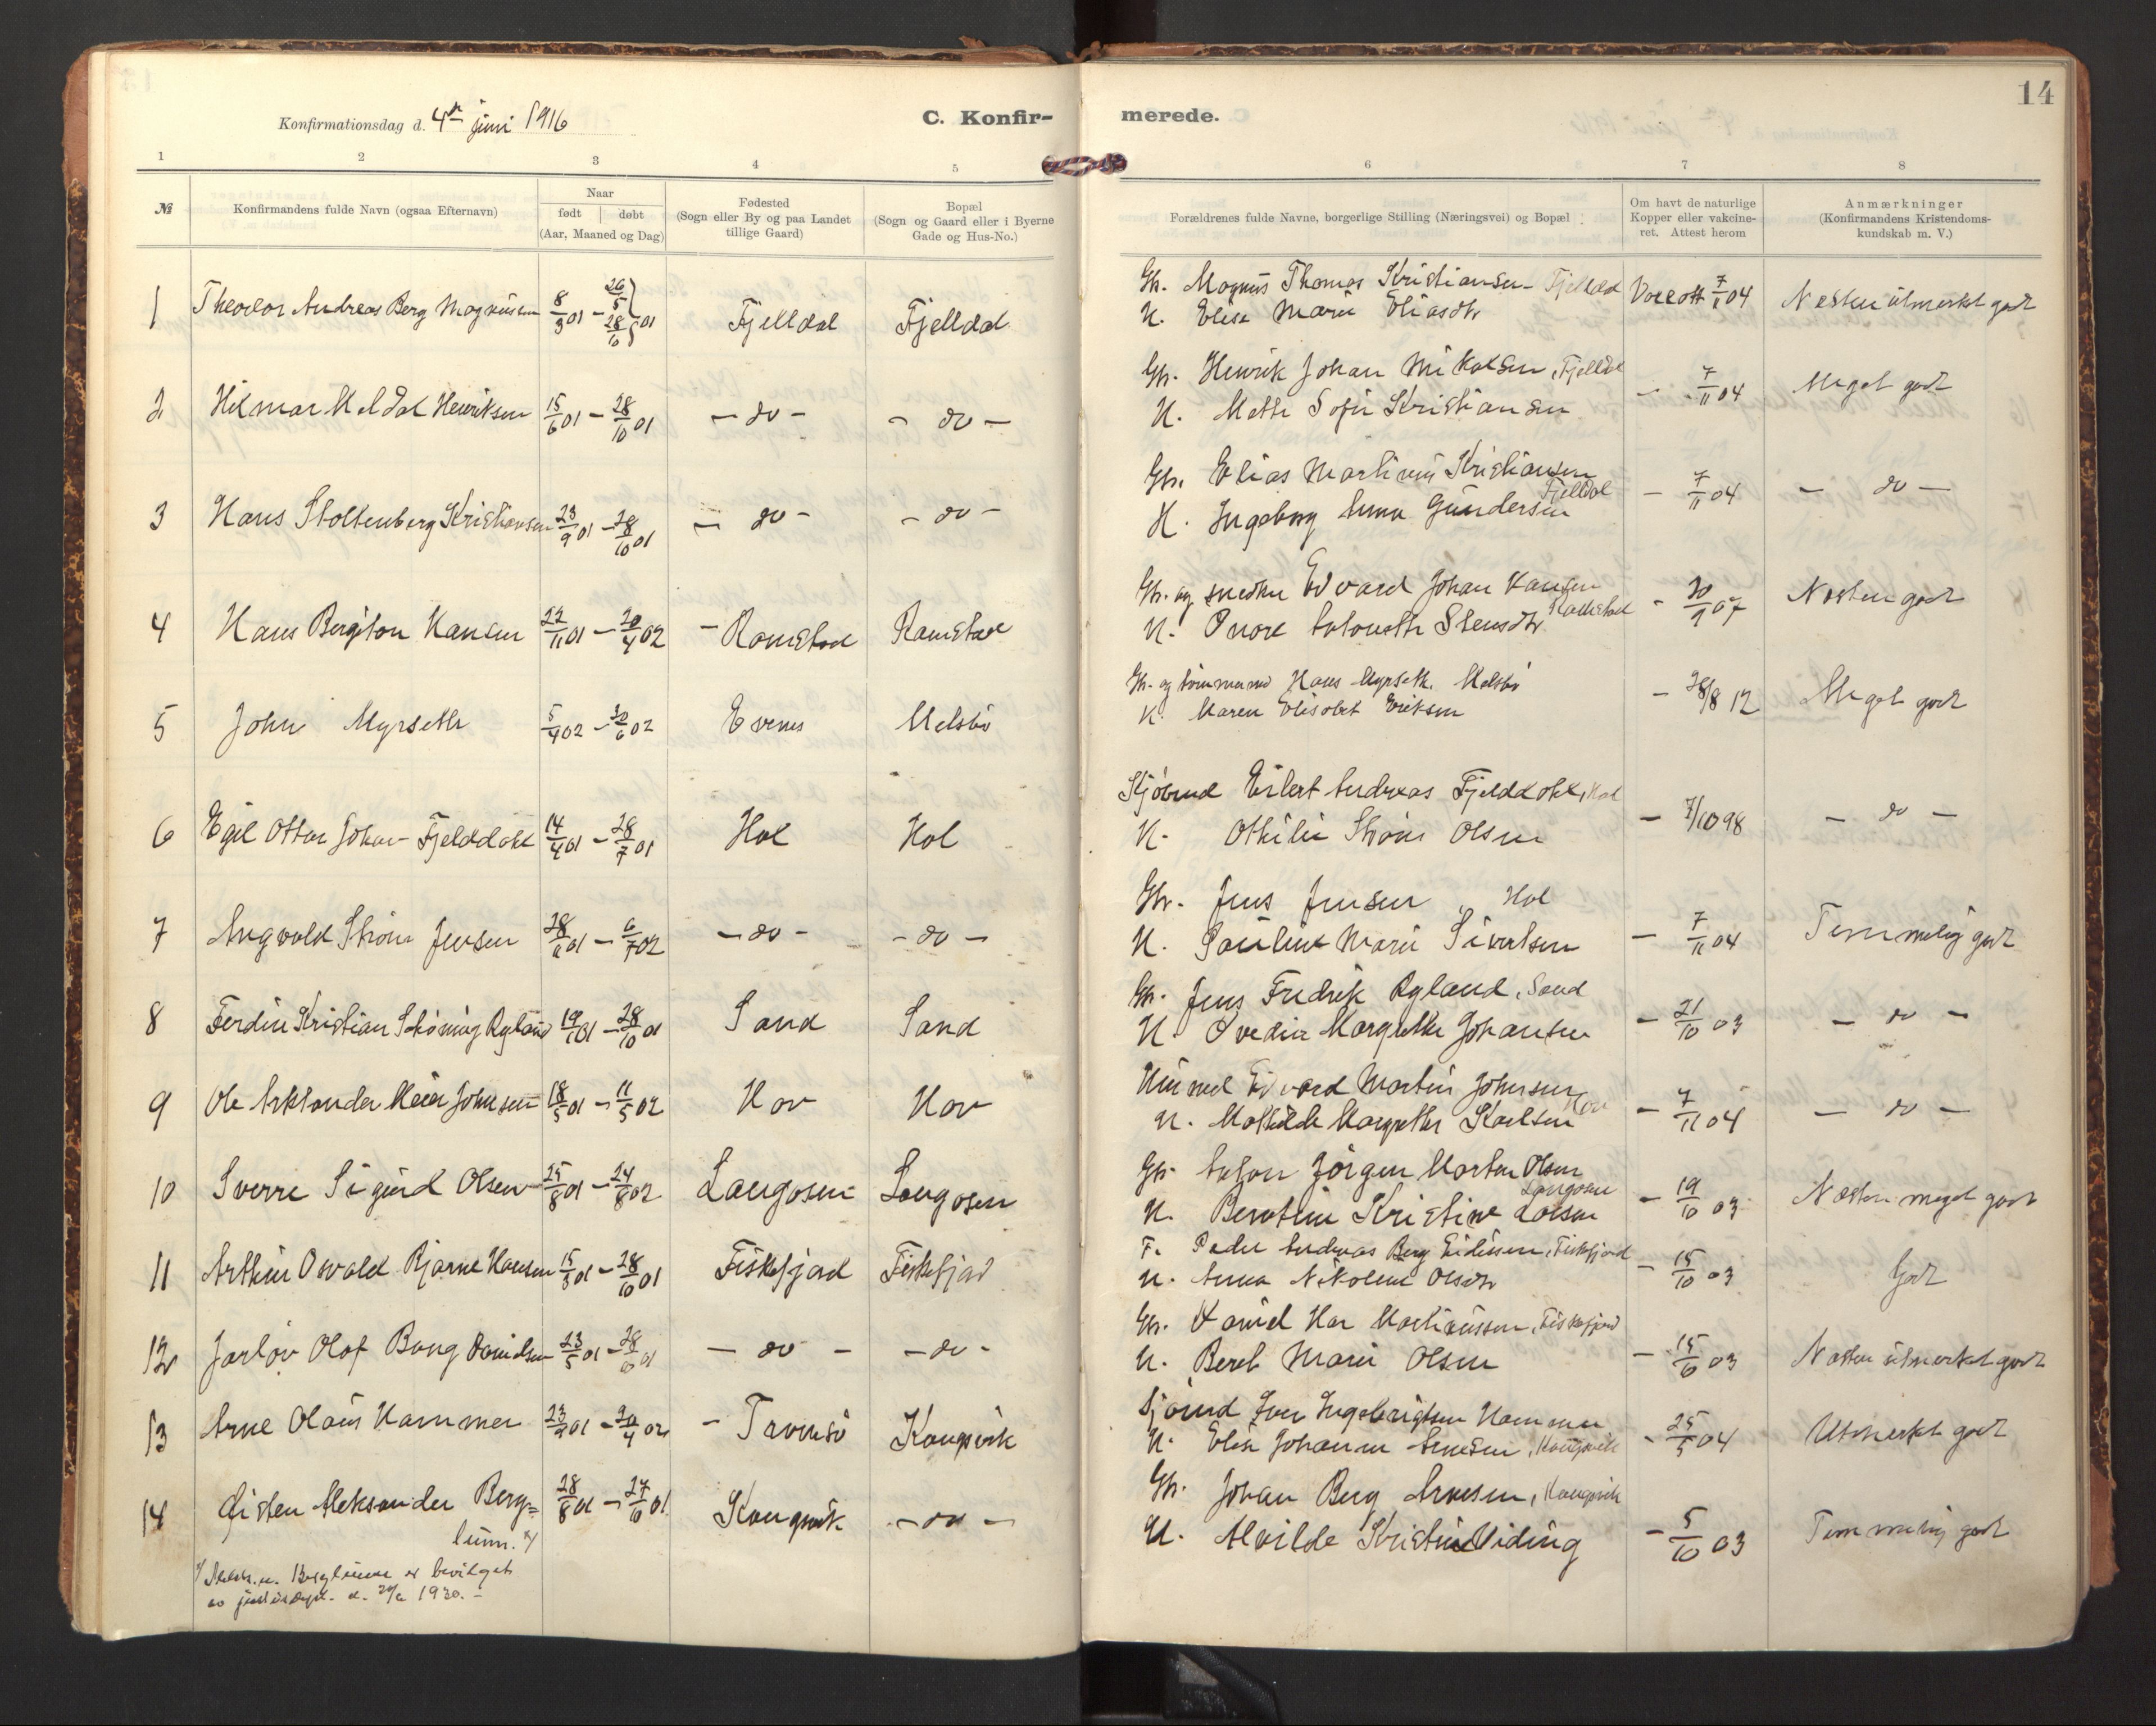 14
Konfirmationsdag d. 4de juni 1916
C. Konfir-
merede.
1 2 3 4 5 6 7 8
№
Konfirmandens fulde Navn (ogsaa Efternavn)
Naar
født | døbt
(Aar, Maaned og Dag)
Fødested
(Sogn eller By og paa Landet
tillige Gaard)
Bopæl
(Sogn og Gaard eller i Byerne
Gade og Hus-No.)
Forældrenes fulde Navne, borgerlige Stilling (Næringsvei) og Bopæl
Om havt de naturlige
Kopper eller vakcine-
ret. Attest herom
Anmærkninger
(Konfirmandens Kristendoms-
kundskab m. V.)
1 Theodor Andreas Berg Magnüssen 8/3 01 - 26/5 28/10 01 Fjelldal Fjelldal
Gb. Magnüs Thomas Kristiansen Fjelldal
H. Elise Marie Eliasdtr
Vacc att 7/11 04 Næsten ütmerket godt
2 Hilmar Meldal Henriksen 15/6 01 - 28/10 01 - do - - do -
Gb. Henrik Johan Mikalsen, Fjelldal
H. Mette Sofie Kristiansen
- 7/11 04 Meget godt
3 Hans Stoltenberg Kristiansen 23/9 01 - 28/10 01 - do - - do -
Gbr. Elias Martinüs Kristiansen
Fjelldal
H. Ingeborg Anna Gündersen
- 7/11 04 - do -
4 Hans Bergiton Hansen 22/11 01 - 20/4 02 - Ramstad Ramstad
Gb. og snedker Edvard Johan Hansen
Ramstad
H. Antonette Stensdtr
- 20/9 07 Næsten godt
5 John Myrseth 5/4 02 - 30/6 02 Evenes Melsbö
Gb. og tömmermd Hans Myrseth. Melsbö
H. Maren Elisabet Eriksen
- 28/8 12 Meget godt
6 Egil Ottar Johan Fjelddahl 14/4 01 - 28/7 01 Hol Hol
Kjöbmd Eilert Andreas Fjelddahl, Hol
H. Othilie Ström Olsen
- 7/10 98 - do -
7 Angvald Ström Jensen 28/11 01 - 6/7 02 - do - - do -
Gb. Jens Jensen, Hol
H. Pauline Marie Sivertsen
- 7/11 04 Temmelig godt
8 Ferdin Kristian Schöning Ryland 19/1 01 - 28/10 01 Sand Sand
Gb. Jens Fredrik Ryland, Sand
H. Ovedia Margrethe Johansen
- 21/10 03 - do -
9 Ole Arktander Meier Johnsen 18/5 01 - 11/5 02 Hov Hov
Hüsmd Edvard Martin Johnsen
Hov
H. Mathilde Margrethe Karlsen
- 7/11 04 - do -
10 Sverre Sigürd Olsen 25/8 01 - 24/8 02 Langosen Langosen
Gb. Anton Jörgen Morten Olsen
Langosen
H. Berntine Kristine Larsen
- 19/10 03 Næsten meget godt
11 Arthür Osvald Bjarne Hansen 15/3 01 - 28/10 01 Fiskefjord Fiskefjord
F. Peder Andreas Berg Eidissen, Fiskefjord
H. Anna Nikoline Olsdtr
- 15/10 03 Godt
12 Jarlöv Olof Bang Danielsen 23/5 01 - 28/10 01 - do - - do -
Gb. Daniel Har Mathiassen, Fiskefjord
H. Beret Marie Olsen
- 15/10 03 Næsten ütmerket godt
13 Arne Olaüs Hammer 23/9 01 - 20/4 02 - Tromsö Kongsvik
Sjömd Iver Ingebrigtsen Hammer
H. Elise Johanne Arnesen, Kongsvik
- 25/5 04 Utmerket godt
14 Eisten Aleksander Berg=
lünn. x/ 28/8 01 - 27/10 01 Kongsvik - do -
Gb. Johan Berg Arnesen, Kongsvik
H. Alvilde Kristine Viding
- 5/10 03 Temmelig godt
x/ Berglünn er bevilget
av jüstisdept. d. 1930. -